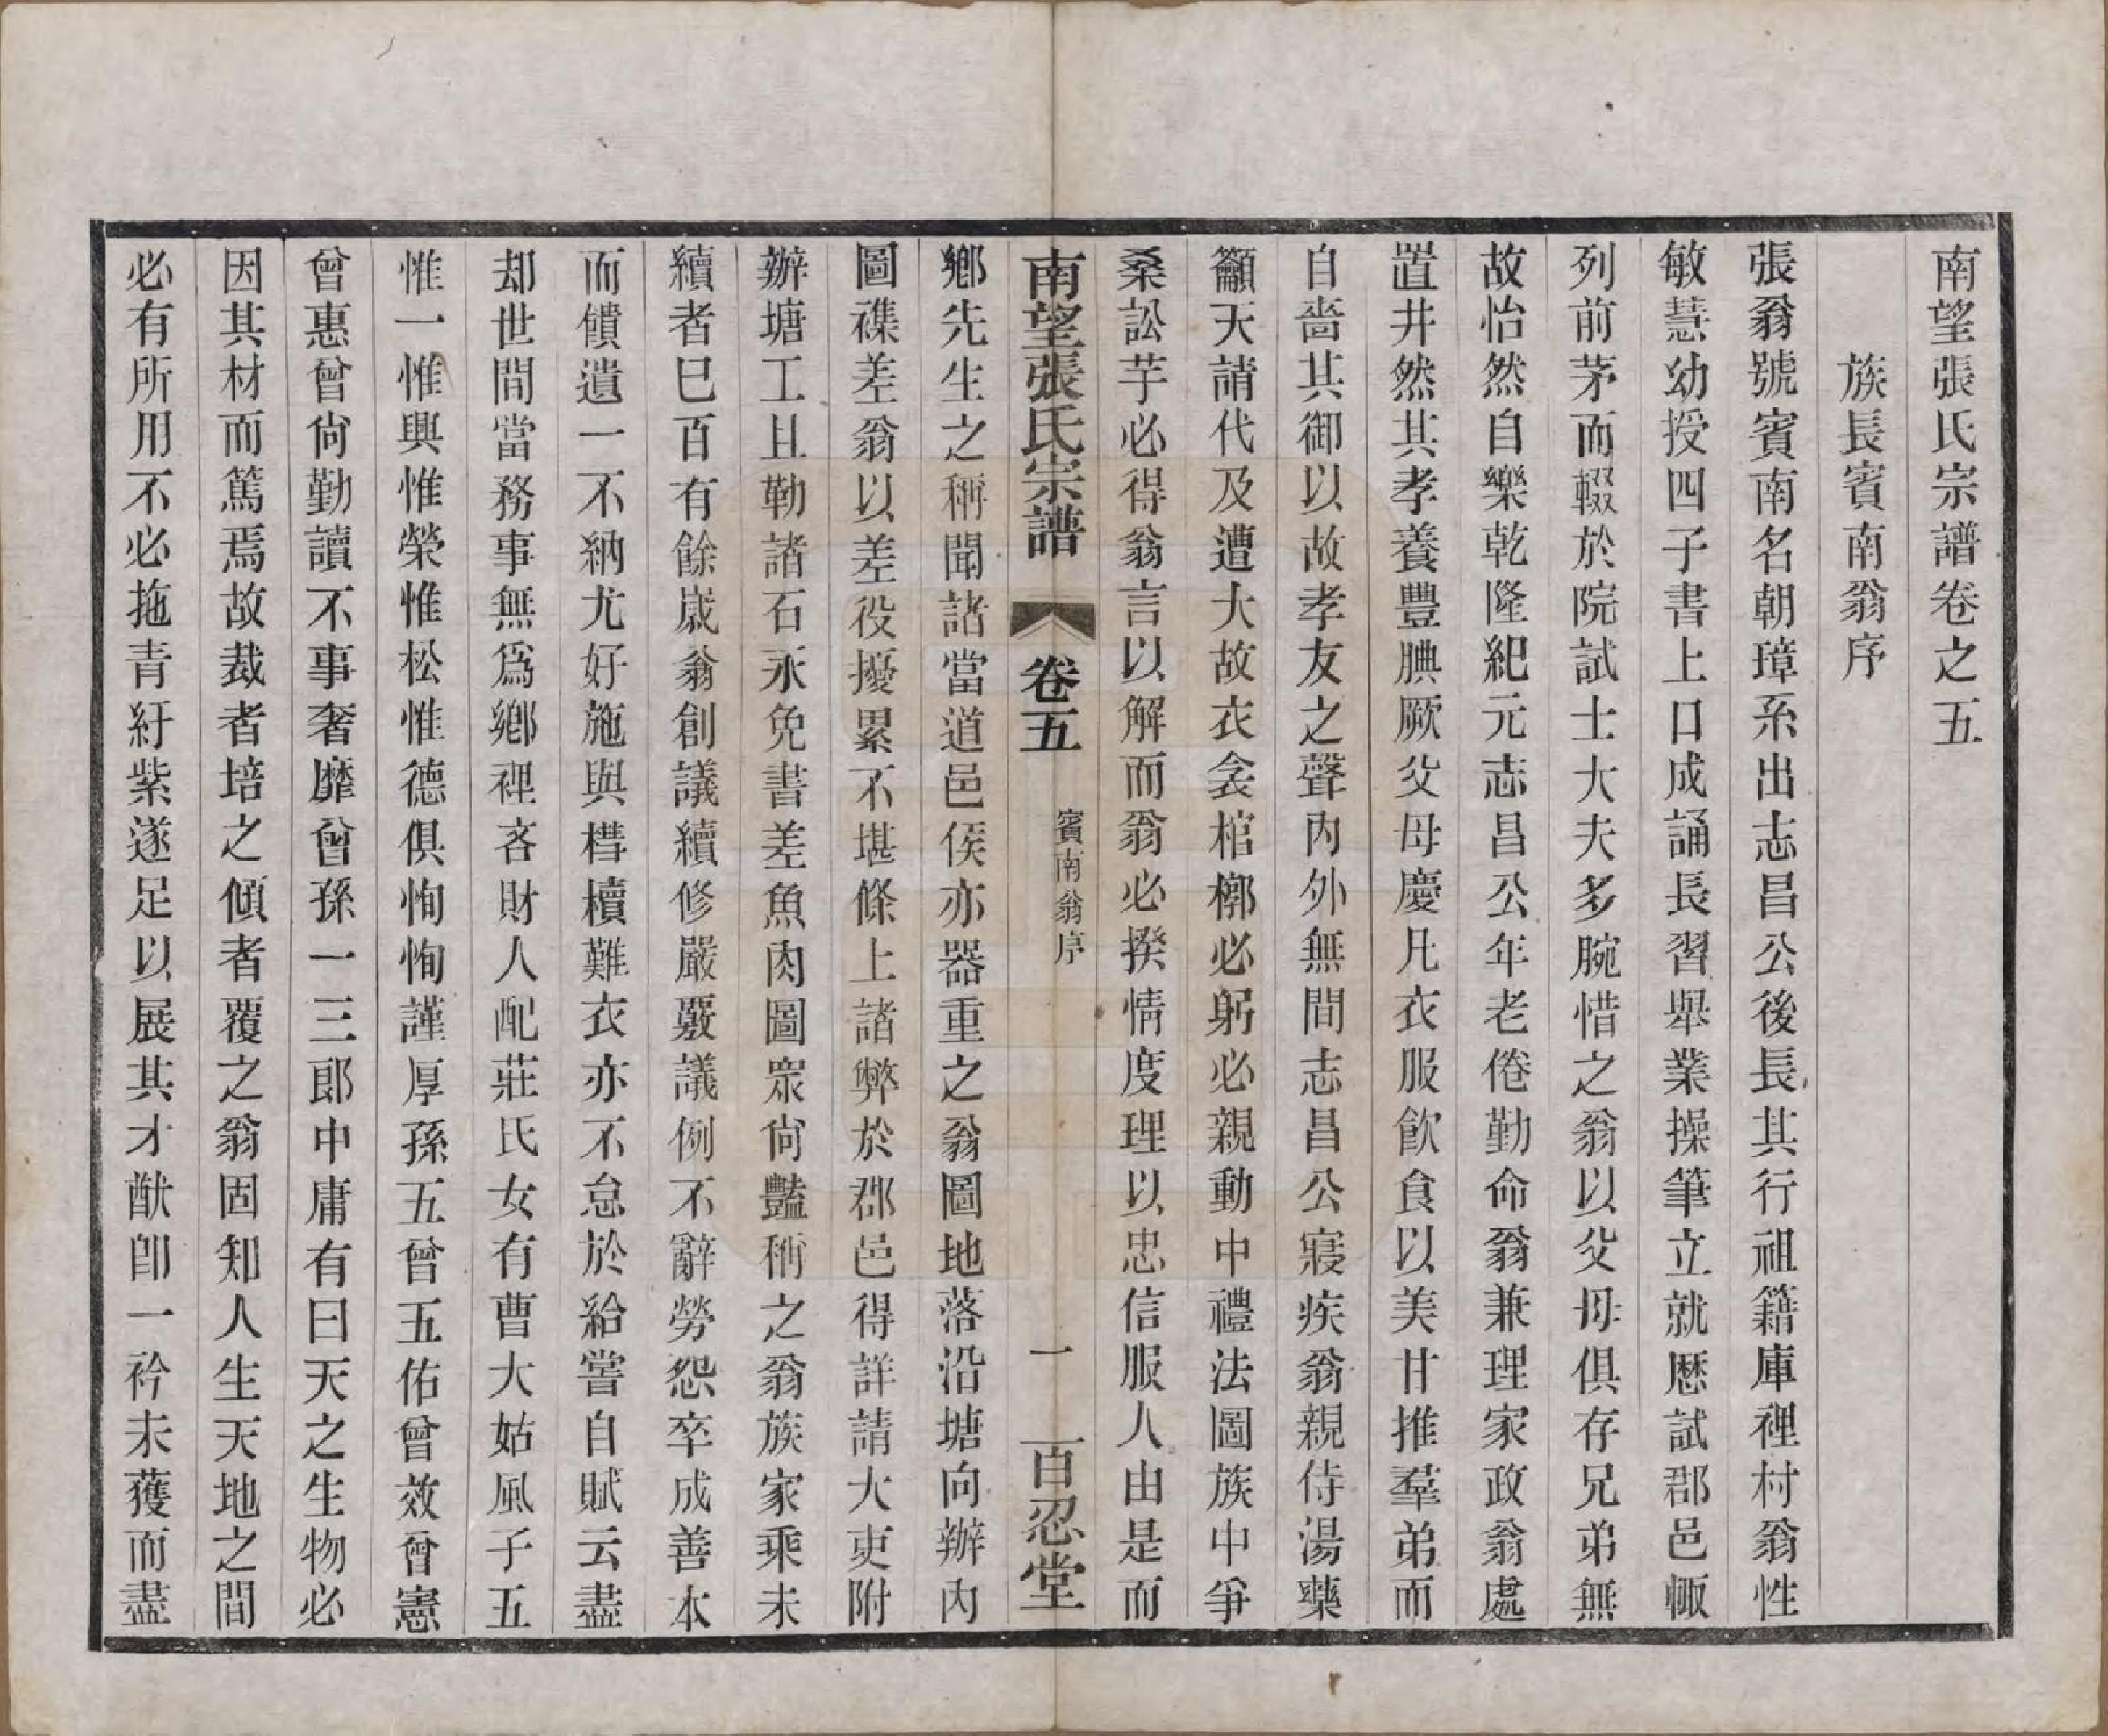 南望張氏宗譜卷之五
族長賓南翁序
張翁號賓南名朝璋系出志昌公後長其行祖籍庫裡村翁性
敏慧幼授四子書上口成誦長習舉業操筆立就歷試郡邑輙
列前茅而輟於院試士大夫多腕惜之翁以父母俱存兄弟無
故怡然自樂乾隆紀元志昌公年老倦勤命翁兼理家政翁處
置井然其孝養豐腆厥父母慶凡衣服飲食以美甘推羣弟而
自嗇其御以故孝友之聲內外無間志昌公寢疾翁親侍湯藥
籲天請代及遭大故衣衾棺槨必躬必親動中禮法圖族中爭
桑訟芋必得翁言以解而翁必揆情度理以忠信服人由是而
南望張氏宗譜
卷五
賓南翁序
一
百忍堂
鄉先生之稱聞諸當道邑侯亦器重之翁圖地落沿塘向辦內
圖襍差翁以差役擾累不堪條上諸弊於郡邑得詳請大吏附
辦塘工且勒諸石永免書差魚肉圖眾尙豔稱之翁族家乘未
續者巳百有餘歲翁創議續修嚴覈議例不辭勞怨卒成善本
而饋遺一不納尤好施與槥櫝難衣亦不怠於給嘗自賦云盡
却世間當務事無爲鄉裡吝財人配莊氏女有曹大姑風子五
惟一惟興惟榮惟松惟德俱恂恂謹厚孫五曾五佑曾效曾憲
曾惠曾尙勤讀不事奢靡曾孫一三郎中庸有曰天之生物必
因其材而篤焉故裁者培之傾者覆之翁固知人生天地之間
必有所用不必拖青紆紫遂足以展其才猷卽一衿未獲而盡